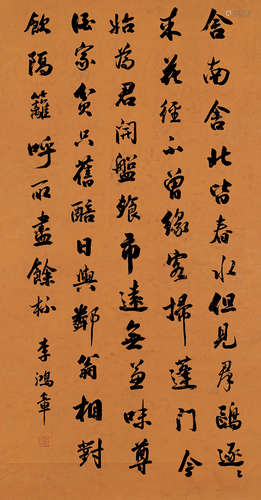 舍南舍北皆春水但見群鷗逐〻
来花徑不曾緣客掃蓬門今
始為君開盤飱市遠無兼味尊
酒家貧只舊醅日與鄰翁相對
飲隔籬呼取盡餘杯 李鴻章